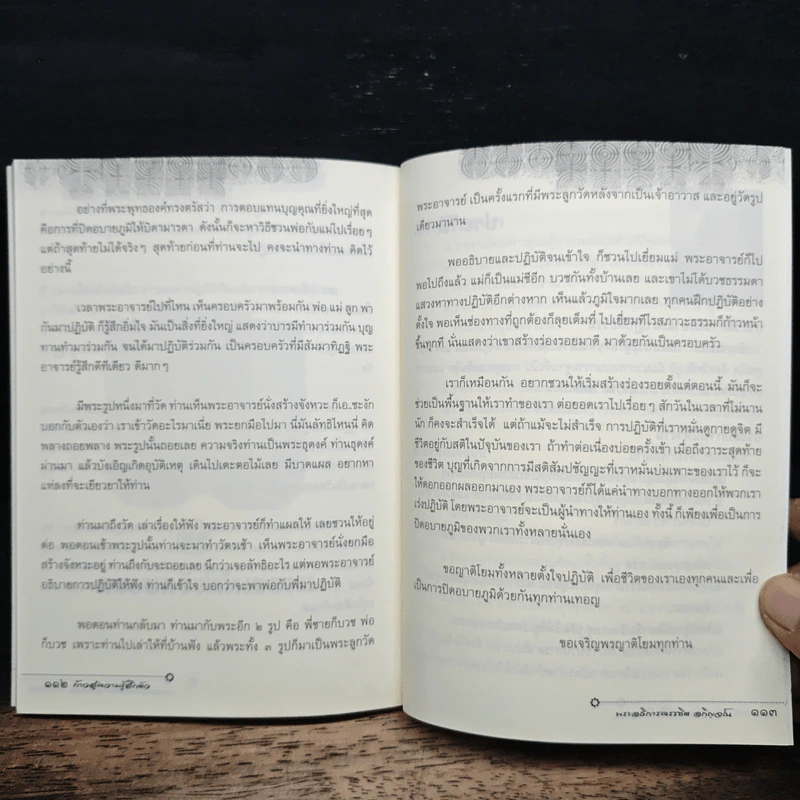 อย่างที่พระพุทธองค์ทรงตรัสว่า การตอบแทนบุญคุณที่ยิ่งใหญ่ที่สุด
คือการที่ปิดอบายภูมิให้บิดามารดา ดังนั้นก็จะหาวิธีชวนพ่อกับแม่ไปเรื่อยๆ
แต่ถ้าสุดท้ายไม่ได้จริงๆ สุดท้ายก่อนที่ท่านจะไป คงจะนำทางท่าน คิดไว้
อย่างนี้
เวลาพระอาจารย์ไปที่ไหน เห็นครอบครัวมาพร้อมกัน พ่อ แม่ ลูก พา
กันมาปฏิบัติ ก็รู้สึกอิ่มใจ มันเป็นสิ่งที่ยิ่งใหญ่ แสดงว่าบารมีทำมาร่วมกัน บุญ
ทานทำมาร่วมกัน จนได้มาปฏิบัติร่วมกัน เป็นครอบครัวที่มีสัมมาทิฏฐิ พระ
อาจารย์รู้สึกดีทีเดียว ดีมากๆ
มีพระรูปหนึ่งมาที่วัด ท่านเห็นพระอาจารย์นั่งสร้างจังหวะ ก็เอ..ชะงัก
บอกกับตัวเองว่า เราเข้าวัดอะไรมาเนี่ย พระยกมือไปมา นี่มันลัทธิไหนนี่ คิด
พลางถอยพลาง พระรูปนั้นถอยเลย ความจริงท่านเป็นพระธุดงค์ ท่านธุดงค์
ผ่านมา แล้วบังเอิญเกิดอุบัติเหตุ เดินไปเตะตอไม้เลย มีบาดแผล อยากหา
แหล่งที่จะเยียวยาให้ท่าน
ท่านมาถึงวัด เล่าเรื่องให้ฟัง พระอาจารย์ก็ทำแผลให้ เลยชวนให้อยู่
ต่อ พอตอนเช้าพระรูปนั้นท่านจะมาทำวัตรเช้า เห็นพระอาจารย์นั่งยกมือ
สร้างจังหวะอยู่ ท่านถึงกับจะถอยเลย นึกว่าเจอลัทธิอะไร แต่พอพระอาจารย์
อธิบายการปฏิบัติให้ฟัง ท่านก็เข้าใจ บอกว่าจะพาพ่อกับพี่มาปฏิบัติ
พอตอนท่านกลับมา ท่านมากับพระอีก ๒ รูป คือ พี่ชายก็บวช พ่อ
ก็บวช เพราะท่านไปเล่าให้ที่บ้านฟัง แล้วพระทั้ง ๓ รูปก็มาเป็นพระลูกวัด
๑๑๒ ก้าวสู่ความรู้สึกตัว
พระอาจารย์ เป็นครั้งแรกที่มีพระลูกวัดหลังจากเป็นเจ้าอาวาส และอยู่วัดรูป
เดียวมานาน
พออธิบายและปฏิบัติจนเข้าใจ ก็ชวนไปเยี่ยมแม่ พระอาจารย์ก็ไป
พอไปถึงแล้ว แม่ก็เป็นแม่ชีอีก บวชกันทั้งบ้านเลย และเขาไม่ได้บวชธรรมดา
แสวงหาทางปฏิบัติอีกต่างหาก เห็นแล้วภูมิใจมากเลย ทุกคนฝึกปฏิบัติอย่าง
ตั้งใจ พอเห็นช่องทางที่ถูกต้องก็ลุยเต็มที่ ไปเยี่ยมทีไรสภาวะธรรมก็ก้าวหน้า
ขึ้นทุกที นั่นแสดงว่าเขาสร้างร่องรอยมาดี มาด้วยกันเป็นครอบครัว
เราก็เหมือนกัน อยากชวนให้เริ่มสร้างร่องรอยตั้งแต่ตอนนี้ มันก็จะ
ช่วยเป็นพื้นฐานให้เราทำของเรา ต่อยอดเราไปเรื่อยๆ สักวันในเวลาที่ไม่นาน
นัก ก็คงจะสำเร็จได้ แต่ถ้าแม้จะไม่สำเร็จ การปฏิบัติที่เราหมั่นดูกายดูจิต มี
ชีวิตอยู่กับสติในปัจจุบันของเรา ถ้าทำต่อเนื่องบ่อยครั้งเข้า เมื่อถึงวาระสุดท้าย
ของชีวิต บุญที่เกิดจากการมีสติสัมปชัญญะที่เราหมั่นบ่มเพาะของเราไว้ ก็จะ
ให้ดอกออกผลออกมาเอง พระอาจารย์ก็ได้แค่นำทางบอกทางออกให้พวกเรา
เร่งปฏิบัติ โดยพระอาจารย์จะเป็นผู้นำทางให้ท่านเอง ทั้งนี้ ก็เพียงเพื่อเป็นการ
ปิดอบายภูมิของพวกเราทั้งหลายนั่นเอง
ขอญาติโยมทั้งหลายตั้งใจปฏิบัติ เพื่อชีวิตของเราเองทุกคนและเพื่อ
เป็นการปิดอบายภูมิด้วยกันทุกท่านเทอญ
ขอเจริญพรญาติโยมทุกท่าน
พระอธิการครรชิต อกิญจโน ๑๑๓